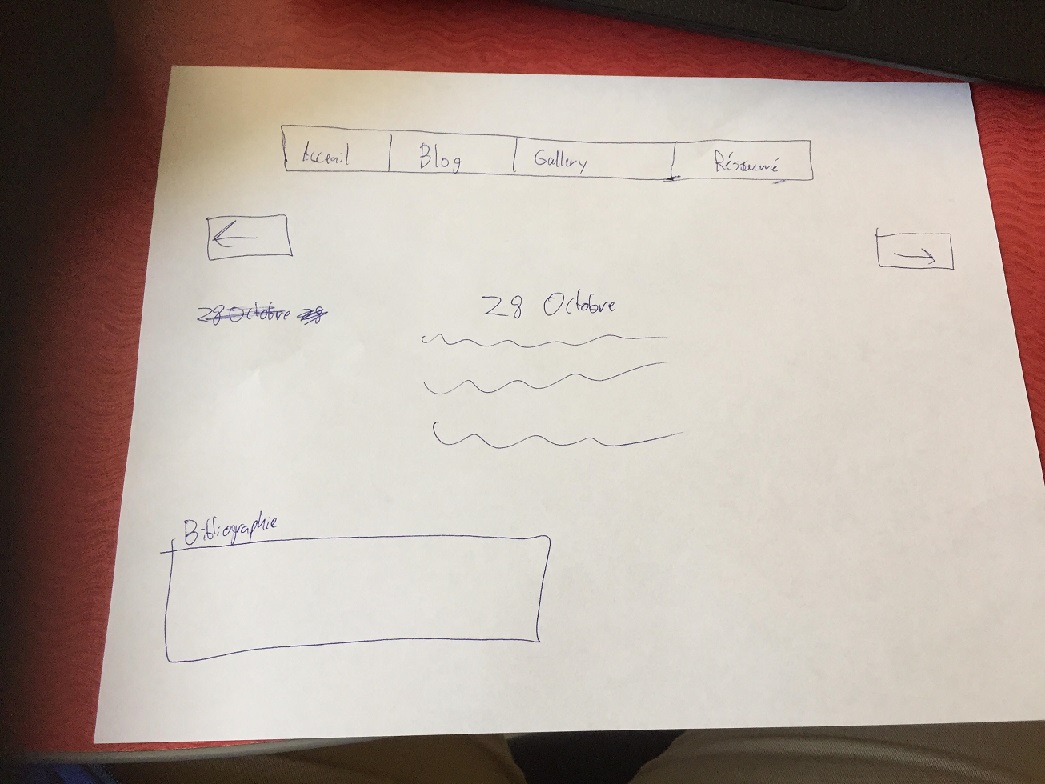 Acceuil Blog Gallery Résumé
28 Octobre
28 Octobre
Bibliographie